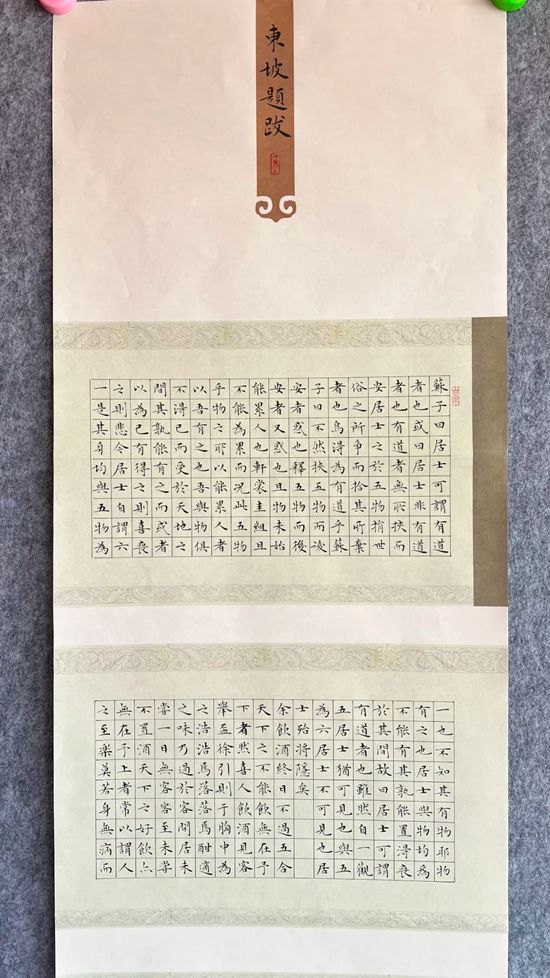 東坡題跋
蘇子曰居士可謂有道
者也或曰居士非有道
者也有道者無所挾而
安居士之於五物捐世
俗之所爭而拾其所棄
者也烏得為有道乎蘇
子曰不然挾五物而後
安者惑也釋五物而後
安者又惑也且物未始
能累人也軒裳圭組且
不能為累而況此五物
乎物之所以能累人者
以吾有之也吾與物俱
不得已而受於天地之
間其孰能有之而或者
以為已有得之則喜喪
之則悲今居士自謂六
一是其身均與五物為
一也不知其有物耶物
有之也居士與物均為
不能有其孰能置得喪
於其間故曰居士可謂
有道者也雖然自一觀
五居士猶可見也與五
為六居士不可見也居
士殆將隱矣
余飲酒終日不過五合
天下之不能飲無在予
下者然喜人飲酒見客
舉盃徐引則予胸中為
之浩浩焉落落焉酣適
之味乃過於客閒居未
嘗一日無客客至未嘗
不置酒天下之好飲亦
無在予上者常以謂人
之至樂莫若身無病而